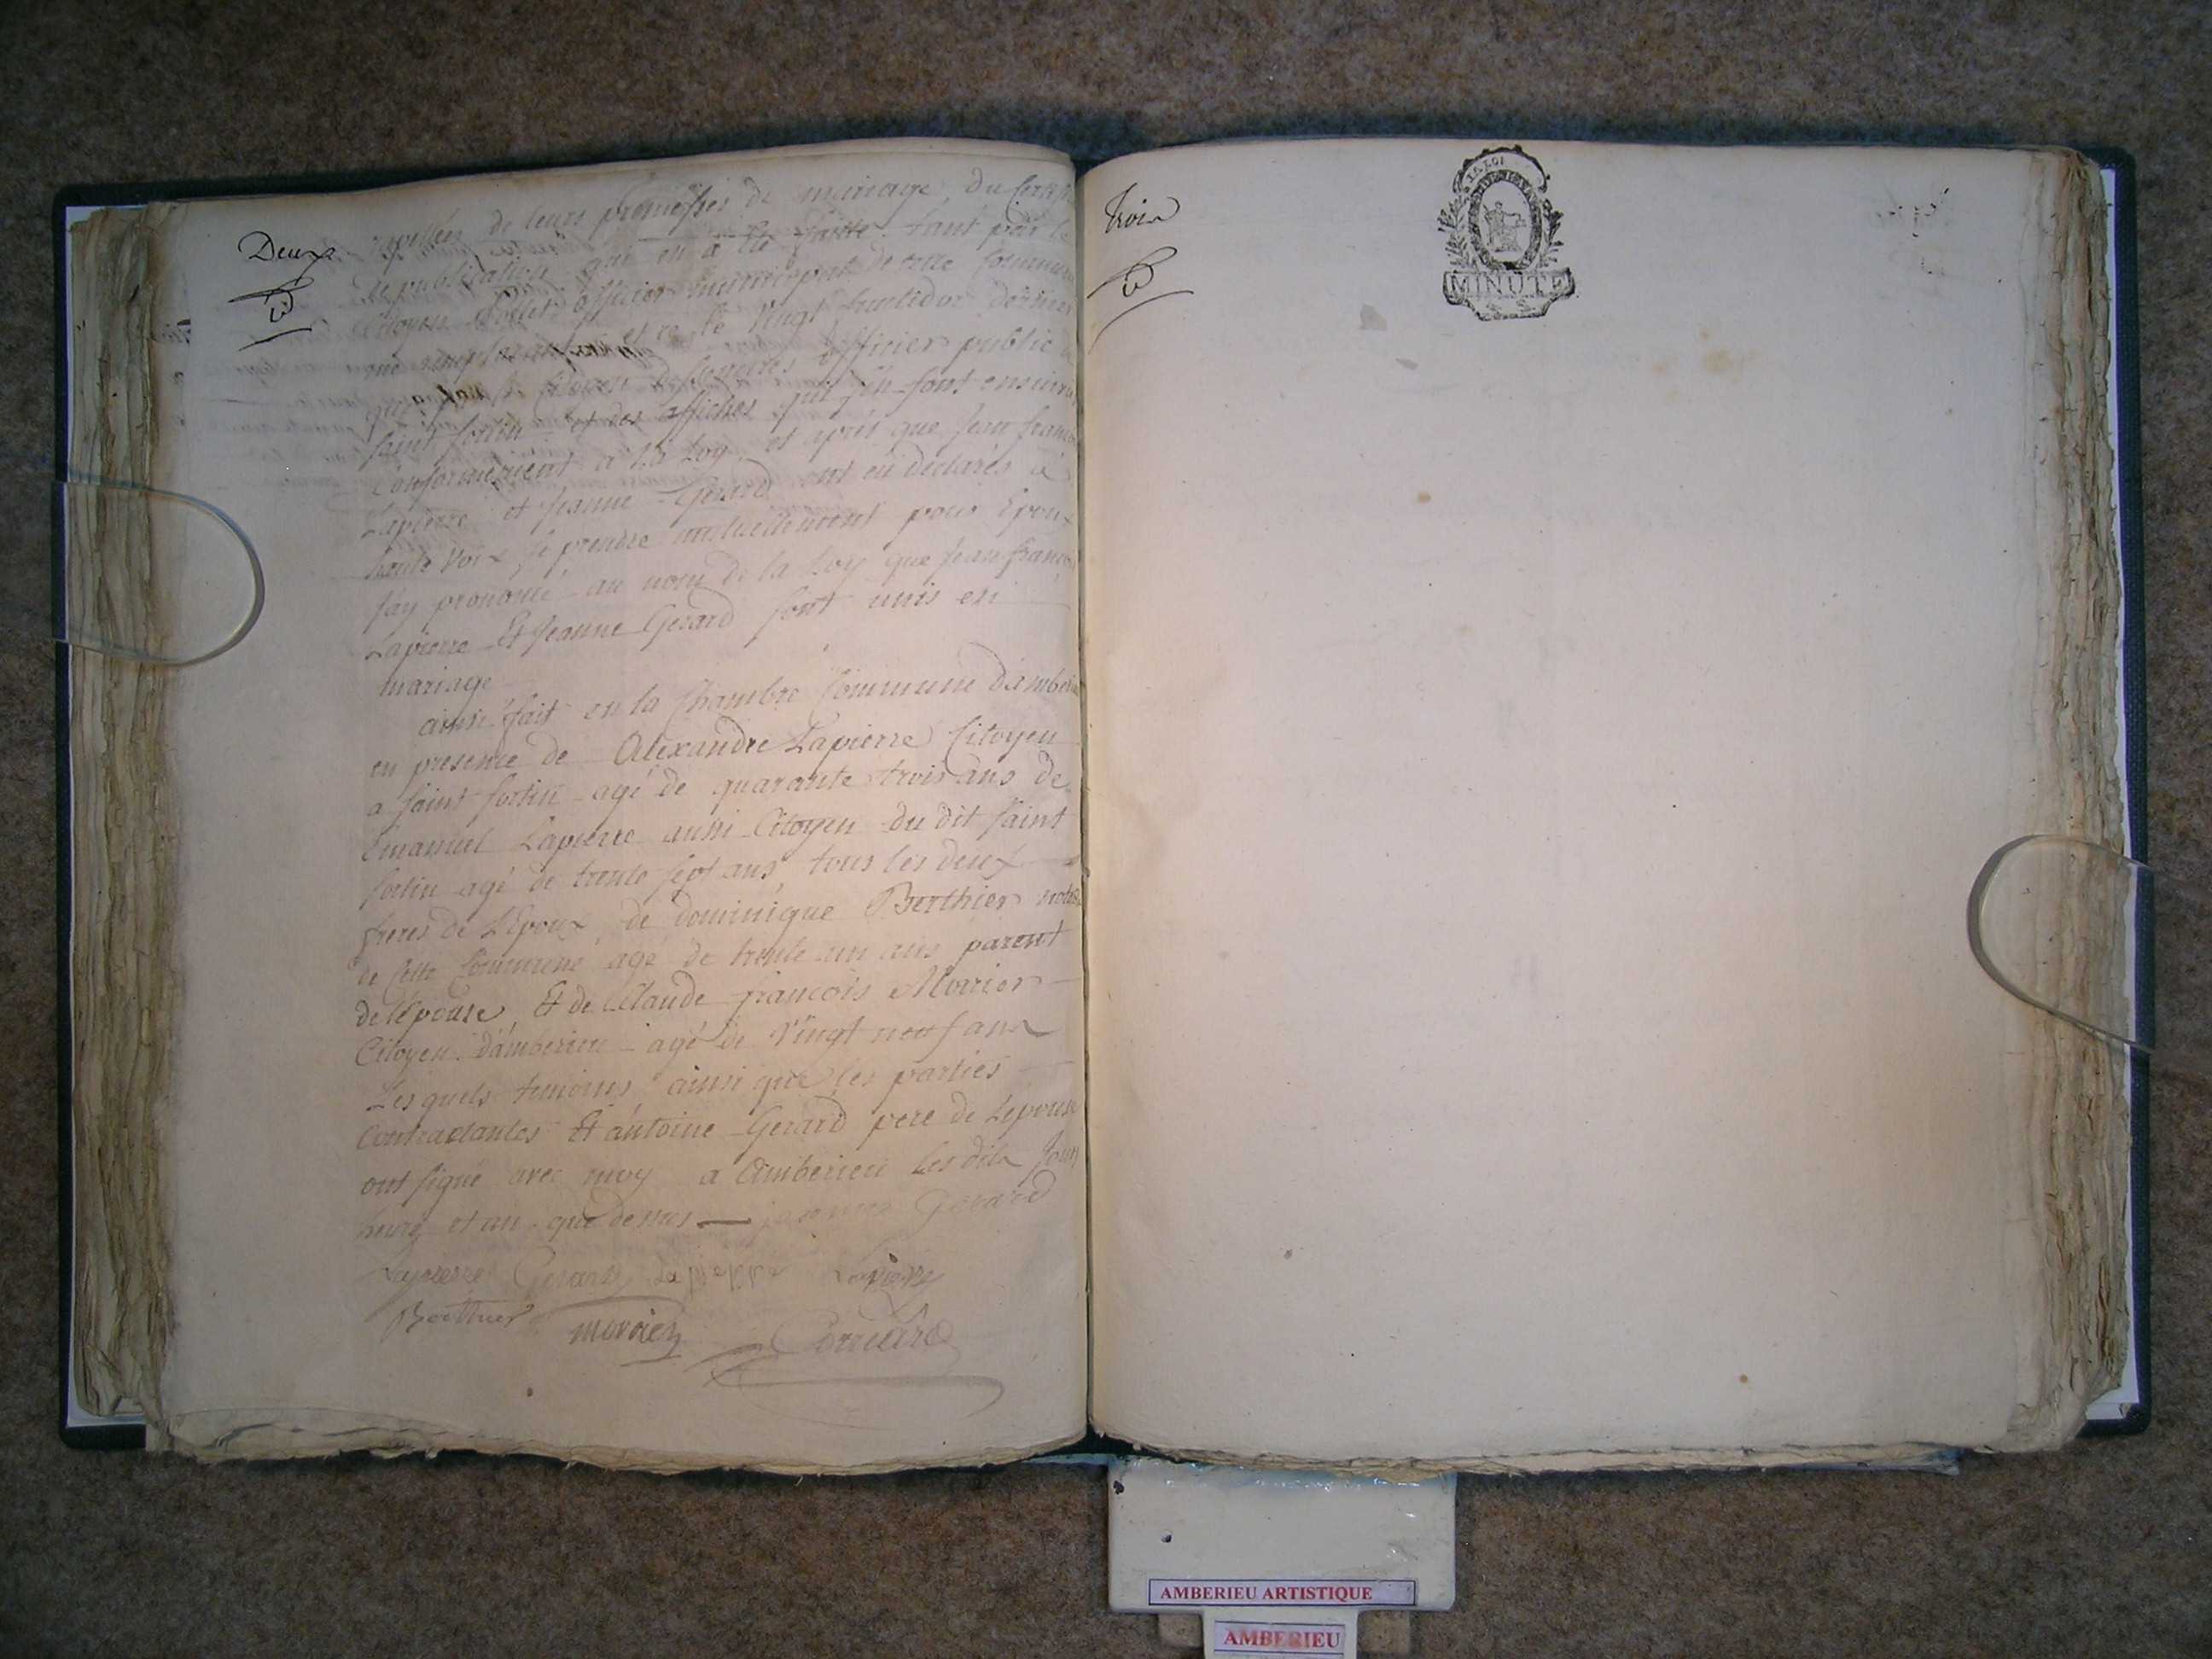 Deux
de leurs promesses de mariage du
de publication qui en a été faitte tant par le
Citoyen officier municipal de cette Commune
le Vingt fructidor dernier
Citoyen officier public
saint sorlin et des affiches qui s'en sont ensuivie
Conformement a la Loy, et aprés que Jean francois
Lapierre et Jeanne Gerard ont eu declarés a
haute Voix se prendre mutuellement pour Epoux
J'ay prononcé au nom de la Loy que Jean francois
Lapierre Et Jeanne Gerard sont unis en
mariage
ainsi fait en la Chambre Commune d'amberieu
en presence de Alexandre Lapierre Citoyen
a saint sorlin agé de quarante trois ans de
Emanuel Lapierre aussi Citoyen du dit saint
sorlin agé de trente sept ans tous les deux
freres de L'Epoux, de dominique Berthier
de cette Commune agé de trente un ans parent
de L'epouse Et de Claude françois Morier
Citoyen d'amberieu agé de Vingt neuf ans
Les quels temoins ainsi que les parties
Contractantes Et antoine Gerard pere de Lepouse
ont signé avec moy a Amberieu les dits Jour
heure et an que dessus — jeanne Gerard
Lapierre Gerard Lapierre Lapierre
Berthier
Trois
LA LOI
MINUTE
AMBERIEU ARTISTIQUE
AMBERIEU